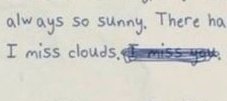 always so sunny. There ha
I miss clouds. I miss you.